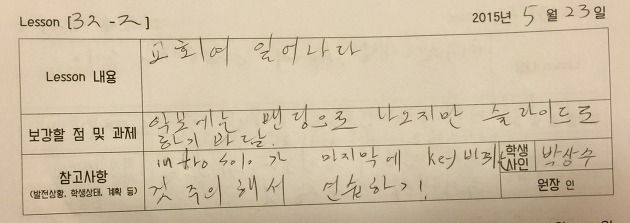 Lesson [32 - 2] 2015년 5월 23일
Lesson 내용 교회여 일어나라
보강할 점 및 과제 악보에는 밴딩으로 나오지만 슬라이드로
하기 바람.
참고사항 intro solo가 마지막에 key 바뀌는 학생 사인 박상수
(발전상황, 학생상태, 계획 등) 것 주의해서 연습하기! 원장 인